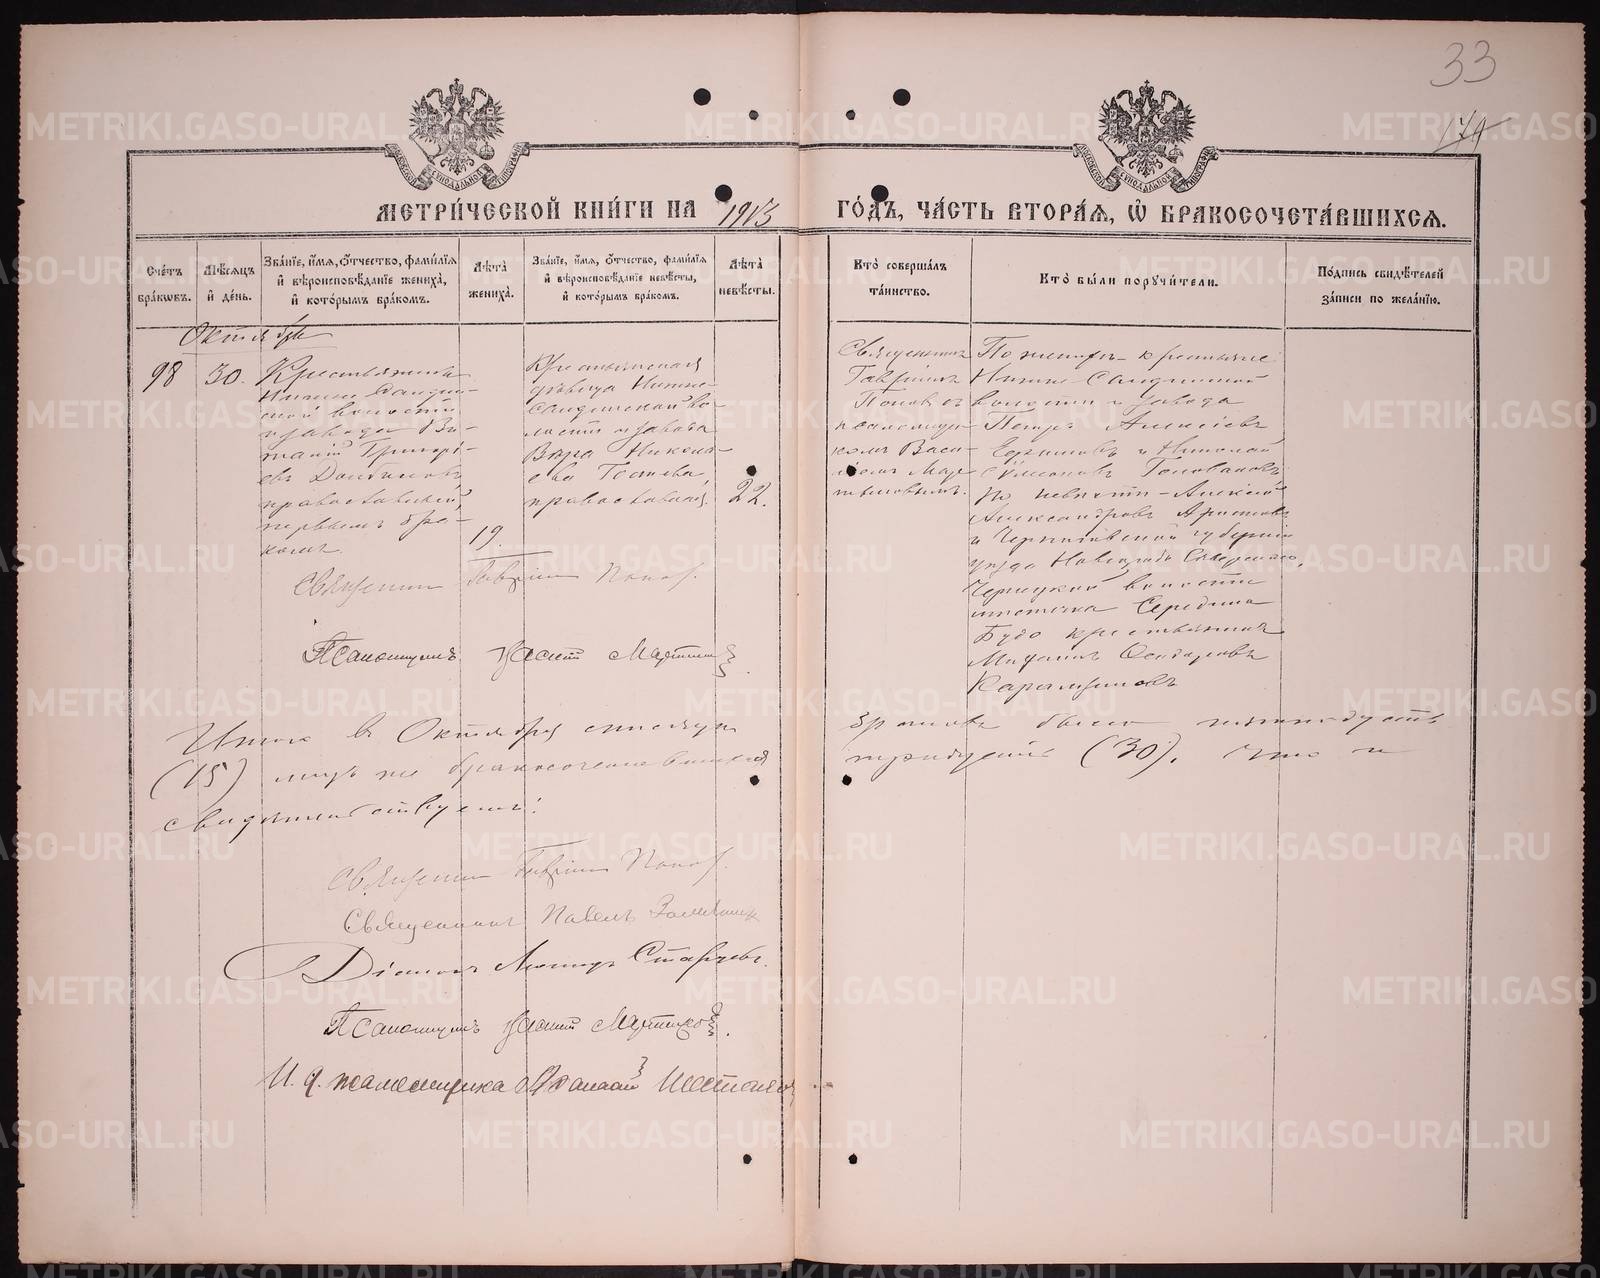 33
174
МЕТРИ́ЧЕСКОЙ КНИ́ГИ НА 1913 ГО́ДЪ, ЧА́СТЬ ВТОРА́Я, Ѡ҆ БРАКОСОЧЕТА́ВШИХСЯ.
Сче́тъ бра́кѡвъ.
Мѣ́сяцъ и҆ де́нь.
Зва́нїе, и҆́мя, ѻ҆́тчество, фами́лїя
и҆ вѣроисповѣ́данїе жениха̀,
и҆ кото́рымъ бра́комъ.
Лѣ́та жениха̀.
Зва́нїе, и҆́мя, ѻ҆́тчество, фами́лїя
и҆ вѣроисповѣ́данїе невѣ́сты,
и҆ кото́рымъ бра́комъ.
Лѣ́та невѣ́сты.
Кто̀ соверша́лъ
та́инство.
Кто̀ бы́ли порꙋчи́тели.
По́дпись свидѣ́телей
за́писи по жела́нїю.
Октябрь
98
30.
Крестьянинъ
Нижне Салдин-
ской волости
и завода Ви-
талій Григорі-
евъ Долбиловъ
православный,
первымъ бра-
комъ
19.
Крестьянская
дѣвица Нижне-
Салдинской во-
лости и завода
Вѣра Никола-
ева Гостева,
православная.
22.
Священникъ
Гавріилъ
Поповъ съ
псаломщи-
комъ Васи-
ліемъ Мар-
По женихѣ – крестьяне
Нижне-Салдинской
волости и завода
Петръ Алексіевъ
и Николай
Головановъ
По невѣстѣ – Алексій
Александровъ
и Черниговской губерніи
уѣзда Новгородъ Сѣверскаго,
волости
мѣстечка Середина
Буда крестьянинъ
Священникъ Гавріилъ Попов.
Псаломщикъ Василій
Итого въ Октябрѣ мѣсяцѣ браковъ было пятнадцать
(15) лицъ же бракосочетавшихся тридцать (30). Что и
свидѣтельствуемъ:
Священникъ Гавріилъ Попов.
Священникъ Павелъ
Діаконъ Леонидъ Старцевъ.
Псаломщикъ Василій
И. д. псаломщика
METRIKI.GASO-URAL.RU